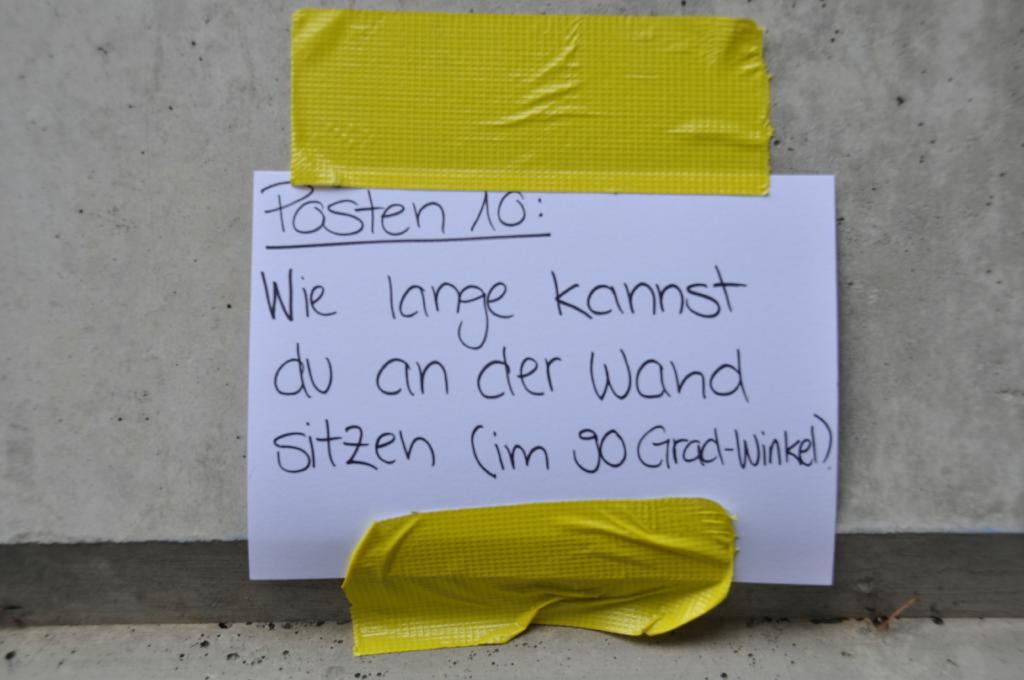 Posten 10:
Wie lange kannst
du an der Wand
sitzen (im 90 Grad-Winkel)?